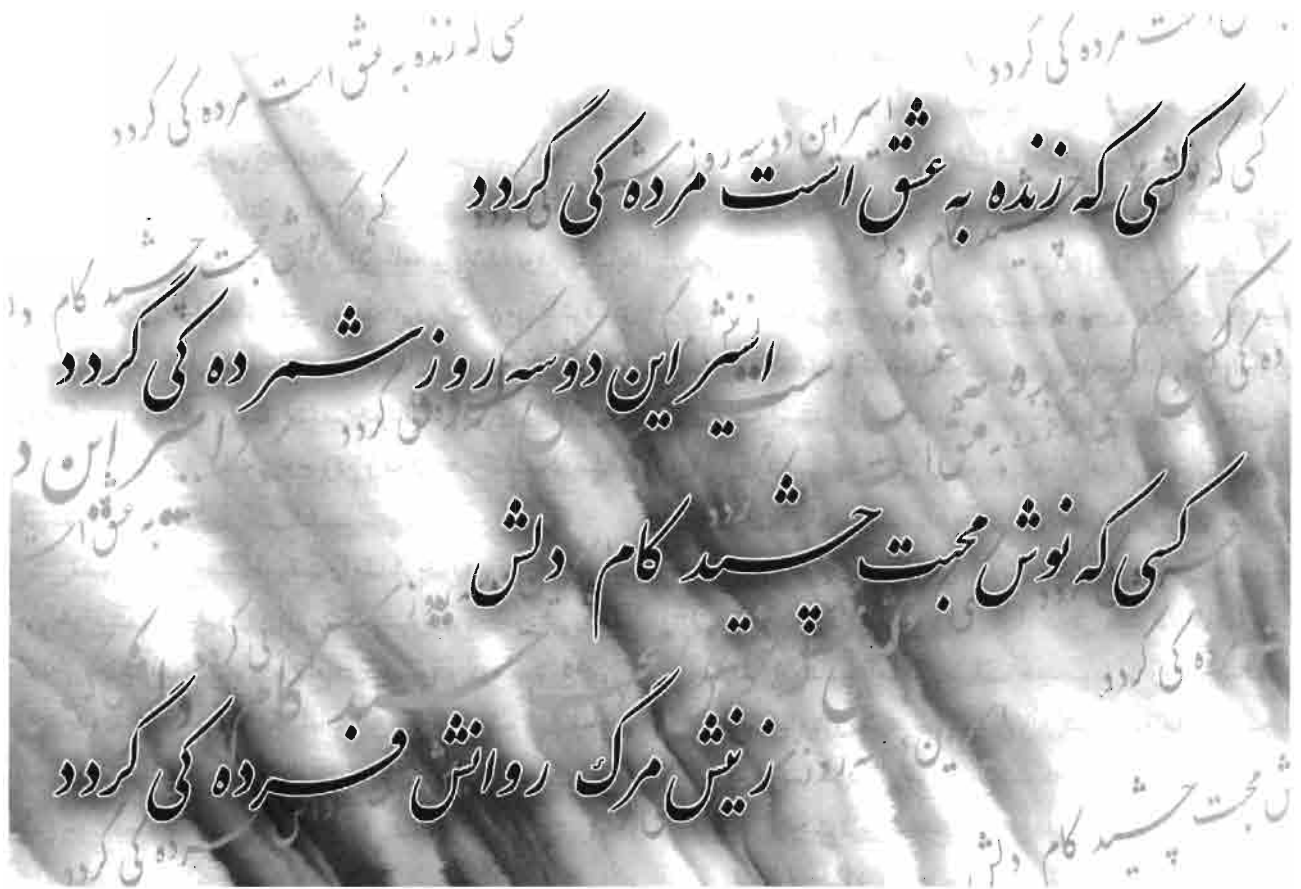 کسی که زنده به عشق است مرده کی گردد
اسیر این دو سه روز شمرده کی گردد
کسی که نوش محبت چشید کام دلش
ز نیش مرگ روانش فسرده کی گردد